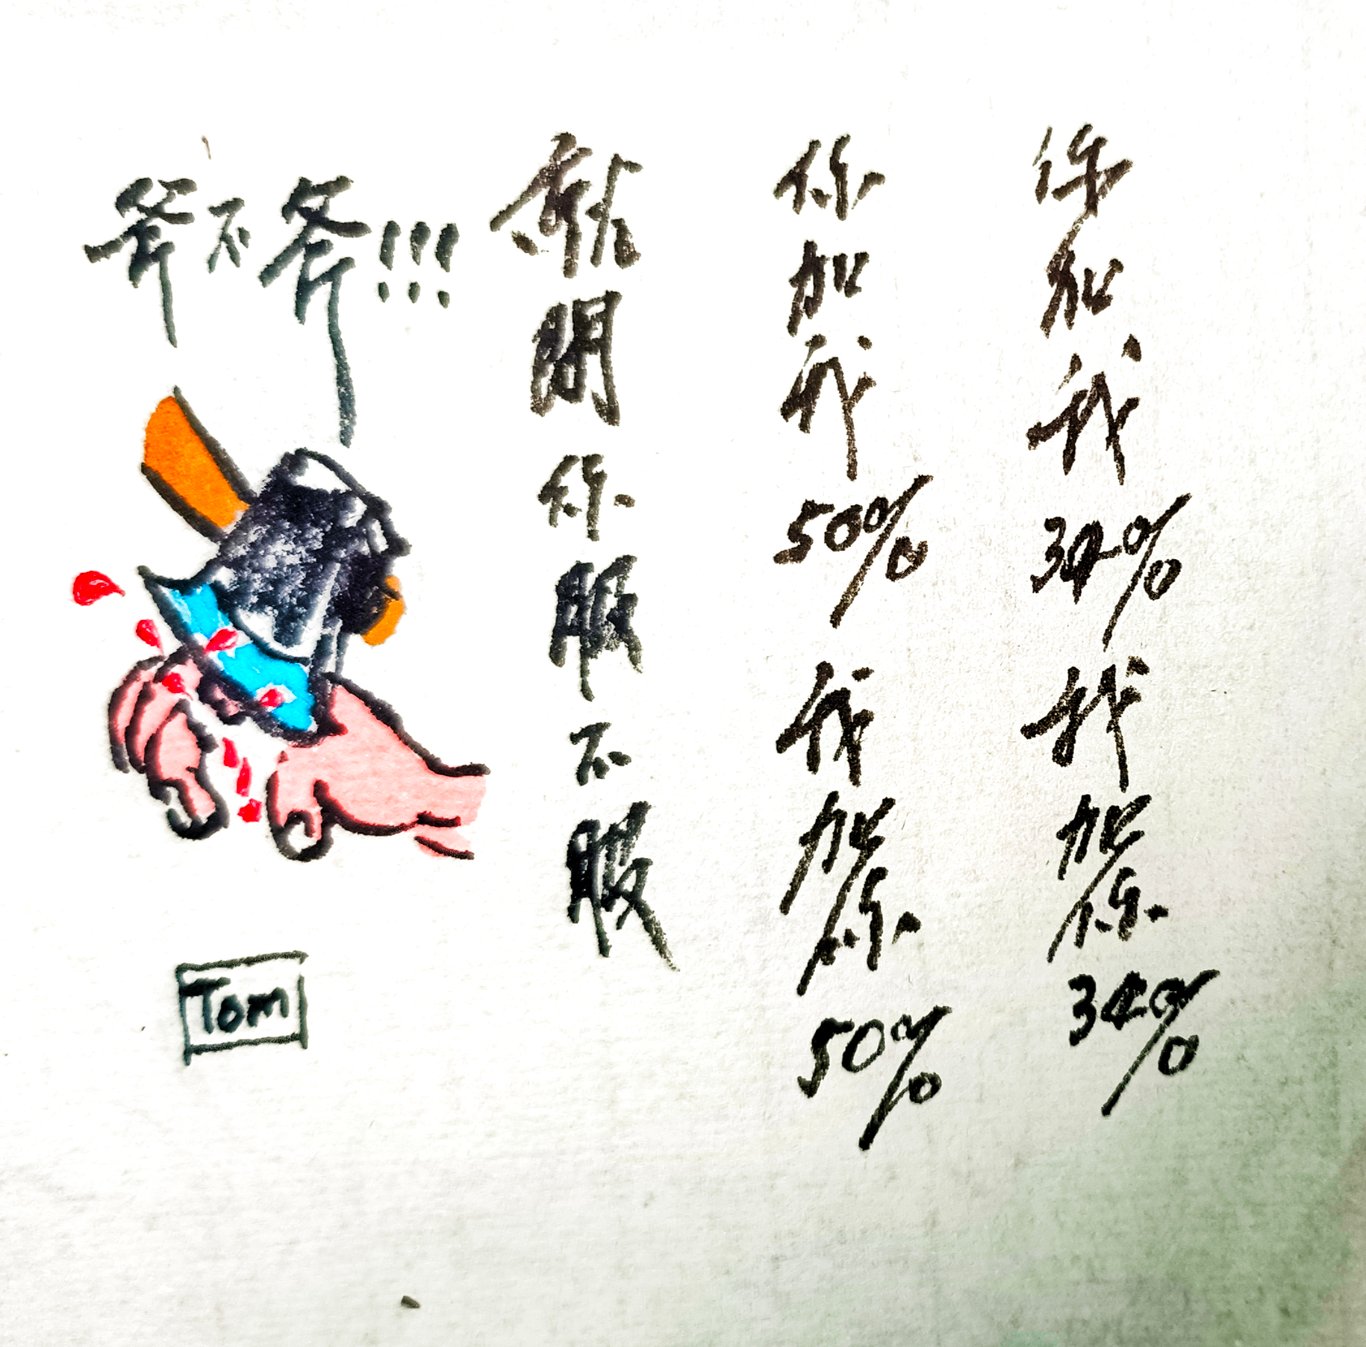 你加我34%我加你34%
你加我50%我加你50%
就問你服不服
斧不斧!!!
Tom